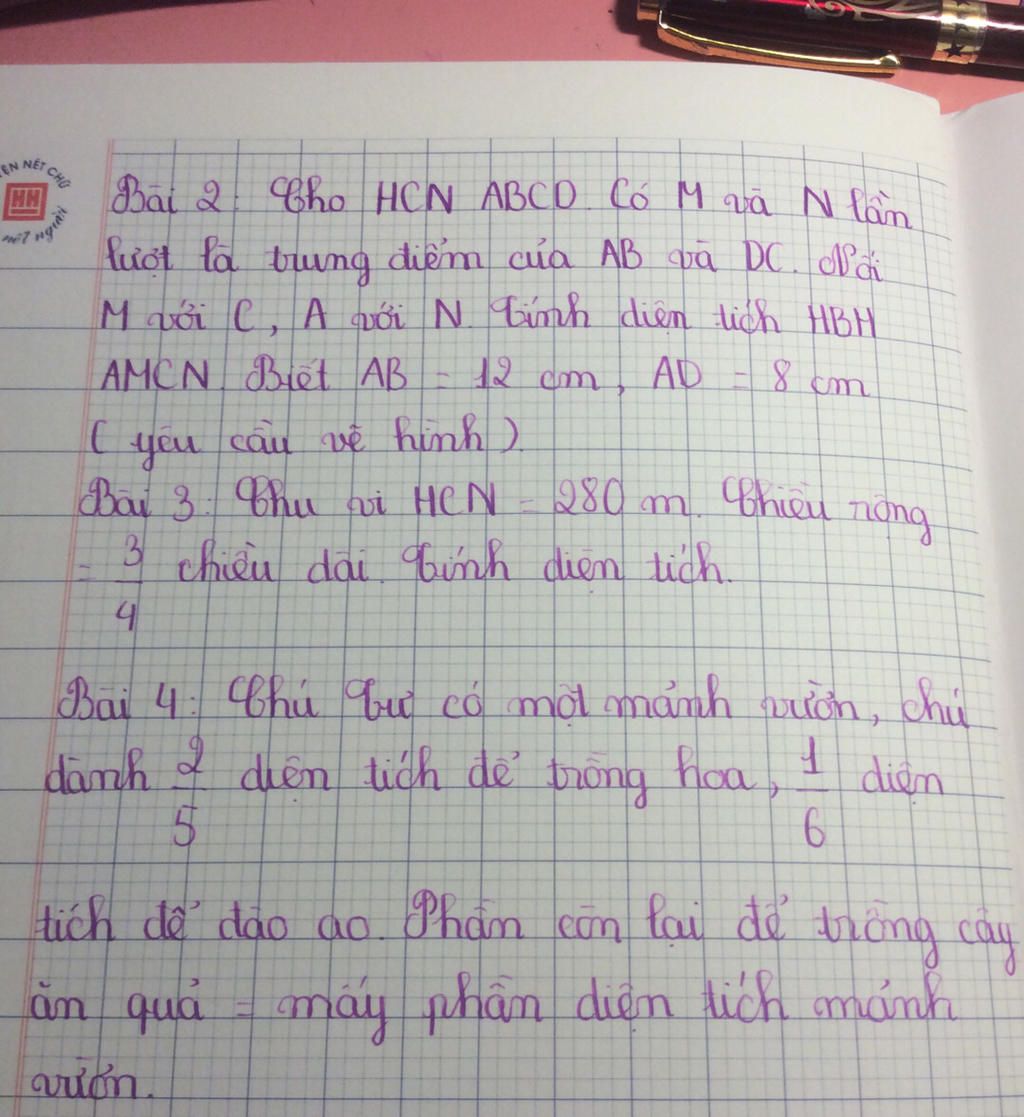 ỆN NÉT CHỮ
HH
NẾT NGƯỜI
Bài 2: Cho HCN ABCD. Có M và N lần
lượt là trung điểm của AB và DC. Nối
M với C, A với N. Tính diện tích HBH
AMCN. Biết AB = 12 cm, AD = 8 cm
( yêu cầu vẽ hình )
Bài 3: Chu vi HCN = 280 m. Chiều rộng
= 3/4 chiều dài. Tính diện tích.
Bài 4: Chú Tư có một mảnh vườn, chú
dành 2/5 diện tích để trồng hoa, 1/6 diện
tích để đào ao. Phần còn lại để trồng cây
ăn quả = mấy phần diện tích mảnh
vườn.